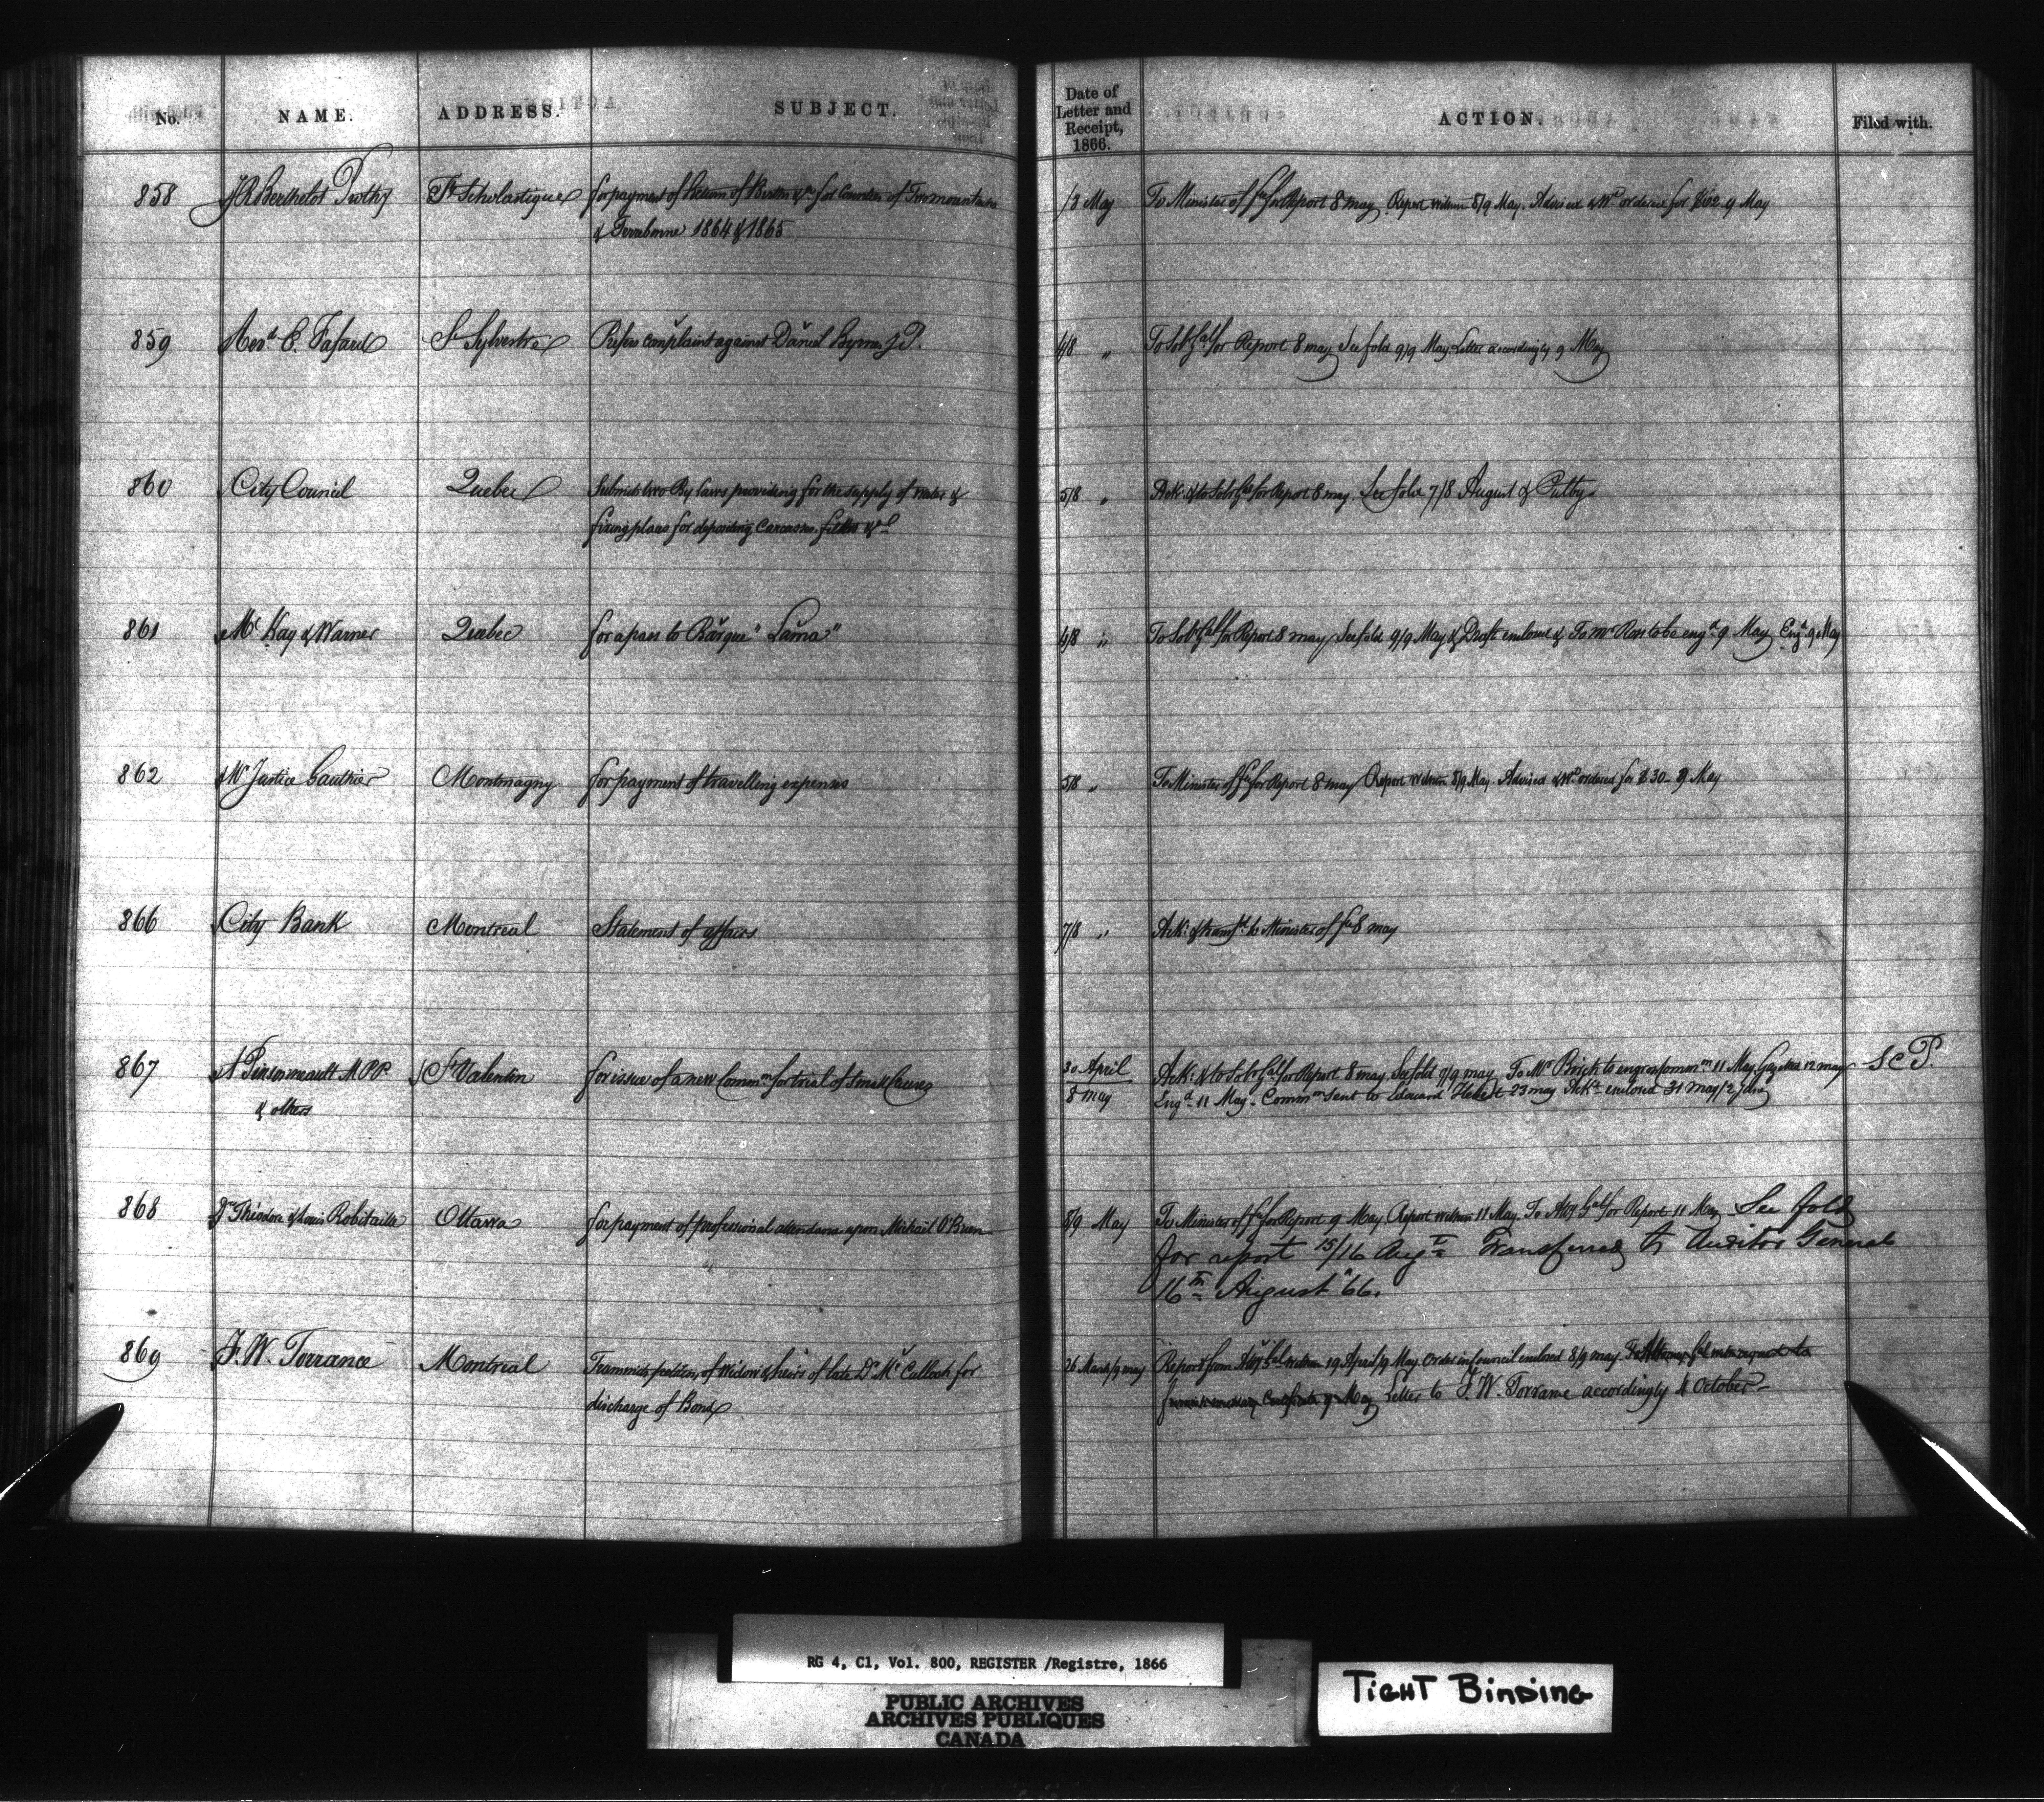 No. NAME. ADDRESS. SUBJECT. Date of Letter and Receipt, 1866. ACTION. Filed with.
858 J R Berthelot Prothy St Scholastique for payment of Return of &c for Counties of 1/8 May To Minister of fce for Report 8 May. Report within 8/9 May. Advised & Wt ordered for 9 May
& Terrebonne 1864 & 1865
859 Revd E. Fafard St Sylvestre Prefers Complaint against Daniel Byrne J.P. 4/8 " To Solr Gal for Report 8 may See fold 9/9 May Letter accordingly 9 May
860 City Council Quebec Submits two By laws providing for the supply of water & 5/8 " Ack: & to Solr Gal for Report 8 may. See fold 7/8 August &
fixing places for depositing Carcasses filth &c
861 McKay & Warner Quebec for a pass to Barque "Lama" 4/8 " To Solr Gal for Report 8 may See fold 9/9 May & Draft enclosed & To Mr to be engd 9 May Engd 9 May
862 Mr Justice Gauthier Montmagny for payment of travelling expenses 5/8 " To Minister of fce for Report 8 may Report within 8/9 May. Advised & Wt ordered for $30 - 9 May
866 City Bank Montreal Statement of affairs 7/8 " Ack: & transfd to Minister of fce 8 may
867 A Pinsonneault M.P.P. St Valentin for issue of a new Commn for trial of small Causes 30 April Ack: & to Solr Gal for Report 8 may. See fold 9/9 may To Mr Brick to engross commn 11 May. Gazettes 12 may S C P.
& others 8 may Engd 11 May. Commn sent to Edouard Hebert 23 may Ackt enclosed 31 may/2 June
868 Drs Théodore & Louis Robitaille Ottawa for payment of professional attendance upon Michael O'Brien 8/9 May To Minister of fce for Report 9 May. Report within 11 May. To Atty Gal for Report 11 May See fold
for report 15/16 Augt Transferred to Auditor General
16th August '66.
869 F. W. Torrance Montreal Transmits petition of widow & heirs of late Dr McCulloch for 26 March/9 may Report from Atty Gal within 19 April/9 May. Order in Council enclosed 8/9 may. To Attorney Gal with request to
discharge of Bond furnish necessary Certificate 9 May Letter to F. W. Torrance accordingly 4 October -
RG 4, C1, Vol. 800, REGISTER /Registre, 1866
PUBLIC ARCHIVES
ARCHIVES PUBLIQUES
CANADA
TIGHT BINDING